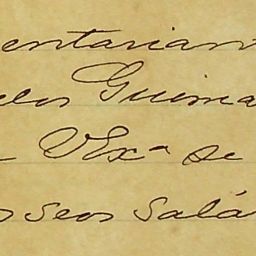 entariam
elos Guima
a VExª se
os seos salá